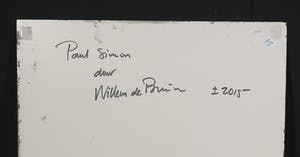 Paul Simon
door
Willem de Bruin ± 2015-